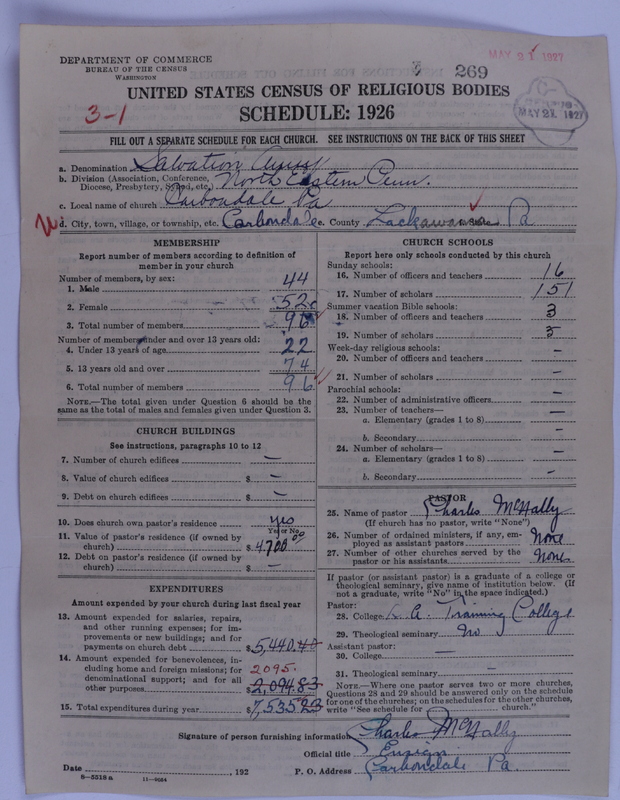 DEPARTMENT OF COMMERCE
BUREAU OF THE CENSUS
WASHINGTON
MAY 21 1927
269
UNITED STATES CENSUS OF RELIGIOUS BODIES
SCHEDULE: 1926
3-1
MAY 21 1927
FILL OUT A SEPARATE SCHEDULE FOR EACH CHURCH. SEE INSTRUCTIONS ON THE BACK OF THIS SHEET
a. Denomination Salvation Army
b. Division (Association, Conference, Diocese, Presbytery, Synod, etc.) North Eastern Penn.
c. Local name of church Carbondale Pa
d. City, town, village, or township, etc. Carbondale e. County Lackawanna Pa
MEMBERSHIP
Report number of members according to definition of
member in your church
Number of members, by sex:
1. Male 44
2. Female 52
3. Total number of members 96
Number of members under and over 13 years old:
4. Under 13 years of age 22
5. 13 years old and over 74
6. Total number of members 96
NOTE.—The total given under Question 6 should be the
same as the total of males and females given under Question 3.
CHURCH BUILDINGS
See instructions, paragraphs 10 to 12
7. Number of church edifices —
8. Value of church edifices $ —
9. Debt on church edifices $ —
10. Does church own pastor's residence yes
Yes or No
11. Value of pastor's residence (if owned by
church) $ 4,700 00
12. Debt on pastor's residence (if owned by
church) $ —
EXPENDITURES
Amount expended by your church during last fiscal year
13. Amount expended for salaries, repairs,
and other running expenses; for im-
provements or new buildings; and for
payments on church debt $ 5,440.40
14. Amount expended for benevolences, in-
cluding home and foreign missions; for 2095.
denominational support; and for all
other purposes $ 2,094.83
15. Total expenditures during year $ 7,535 23
CHURCH SCHOOLS
Report here only schools conducted by this church
Sunday schools:
16. Number of officers and teachers 16
17. Number of scholars 151
Summer vacation Bible schools:
18. Number of officers and teachers 3
19. Number of scholars 5
Week-day religious schools:
20. Number of officers and teachers —
21. Number of scholars —
Parochial schools:
22. Number of administrative officers —
23. Number of teachers—
a. Elementary (grades 1 to 8) —
b. Secondary —
24. Number of scholars—
a. Elementary (grades 1 to 8) —
b. Secondary —
PASTOR
25. Name of pastor Charles McNally
(If church has no pastor, write "None")
26. Number of ordained ministers, if any, em-
ployed as assistant pastors None
27. Number of other churches served by the
pastor or his assistants None
If pastor (or assistant pastor) is a graduate of a college or
theological seminary, give name of institution below. (If
not a graduate, write "No" in the space indicated.)
Pastor:
28. College S. A. Training College
29. Theological seminary No
Assistant pastor:
30. College —
31. Theological seminary —
NOTE.—Where one pastor serves two or more churches,
Questions 28 and 29 should be answered only on the schedule
for one of the churches; on the schedules for the other churches,
write "See schedule for church."
Signature of person furnishing information Charles McNally
Official title Ensign
Date , 192 P. O. Address Carbondale Pa.
8—5518 a 11—9054